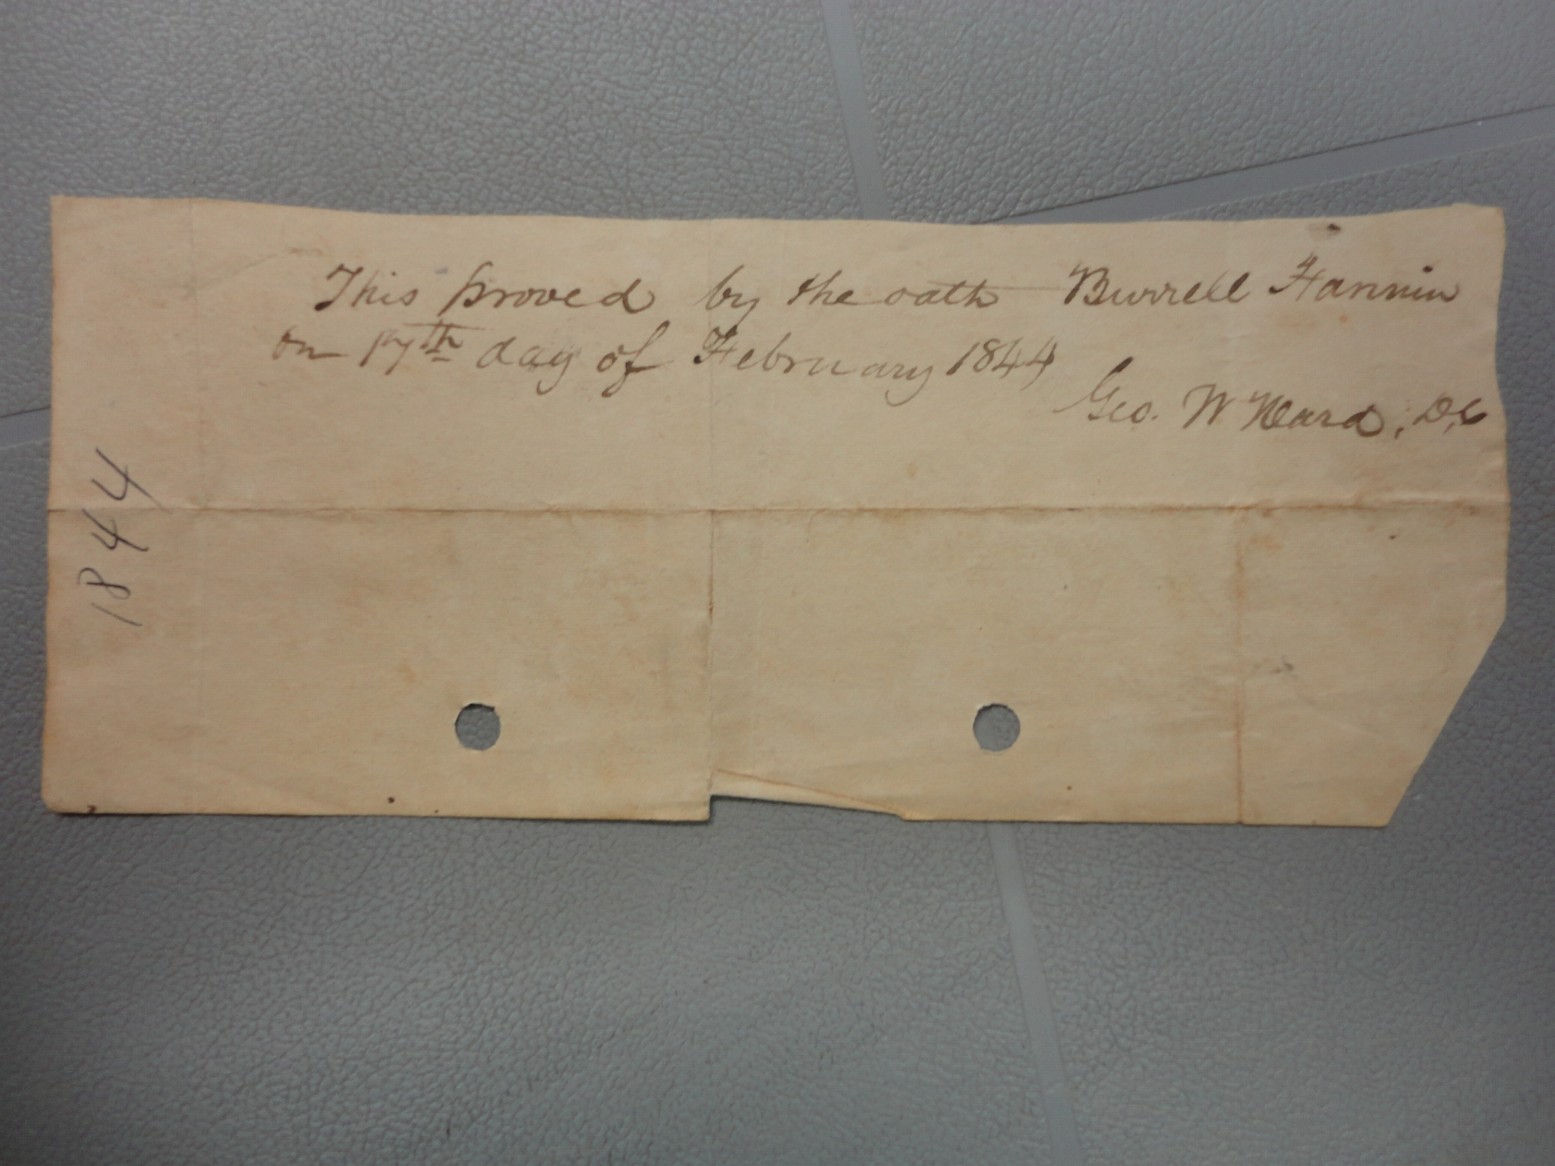 This proved by the oath Burrell Fannin
on 17th day of February 1844
Geo. W Ward, D,C
1844